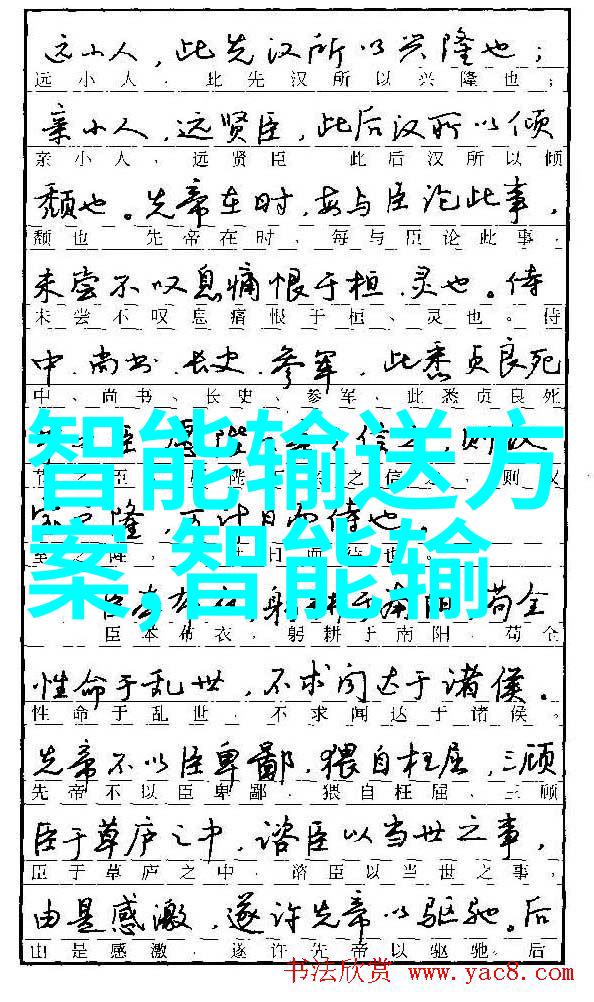 远小人，此先汉所以兴隆也；
远小人，此先汉所以兴隆也；
亲小人，远贤臣，此后汉所以倾
亲小人，远贤臣 此后汉所以倾
颓也。先帝在时，每与臣论此事，
颓也 先帝在时，每与臣论此事，
未尝不叹息痛恨于桓、灵也。侍
未尝不叹息痛恨于桓、灵也。侍
中、尚书、长史、参军，此悉贞良死
中、尚书、长史、参军，此悉贞良死
臣 愿陛 信之，则汉
智能输送方
节之臣 陛 之信之，则汉
隆，可计日而待也。
隆 日而待也。
案,智能输
臣本布衣，躬耕于南阳，苟全
臣本布衣，躬耕于南阳，苟全
性命于乱世，不求闻达于诸侯。
性命于乱世，不求闻达于诸侯。
先帝不以臣卑鄙，猥自枉屈，三顾
先帝不以臣卑鄙，猥自枉屈、三顾
臣于草庐之中，谘臣以当世之事，
臣于草庐之中，谘臣以当世之事，
由是感激，遂许先帝以驱驰。后
由是感激，遂许先帝以驱驰。后
书法欣赏 www.yac8.com